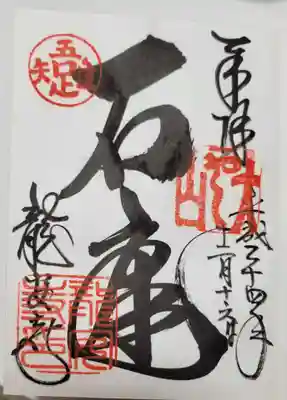 奉拝
大雲山
平成二十四年
十一月十六日
石庭
吾唯足知
龍安寺